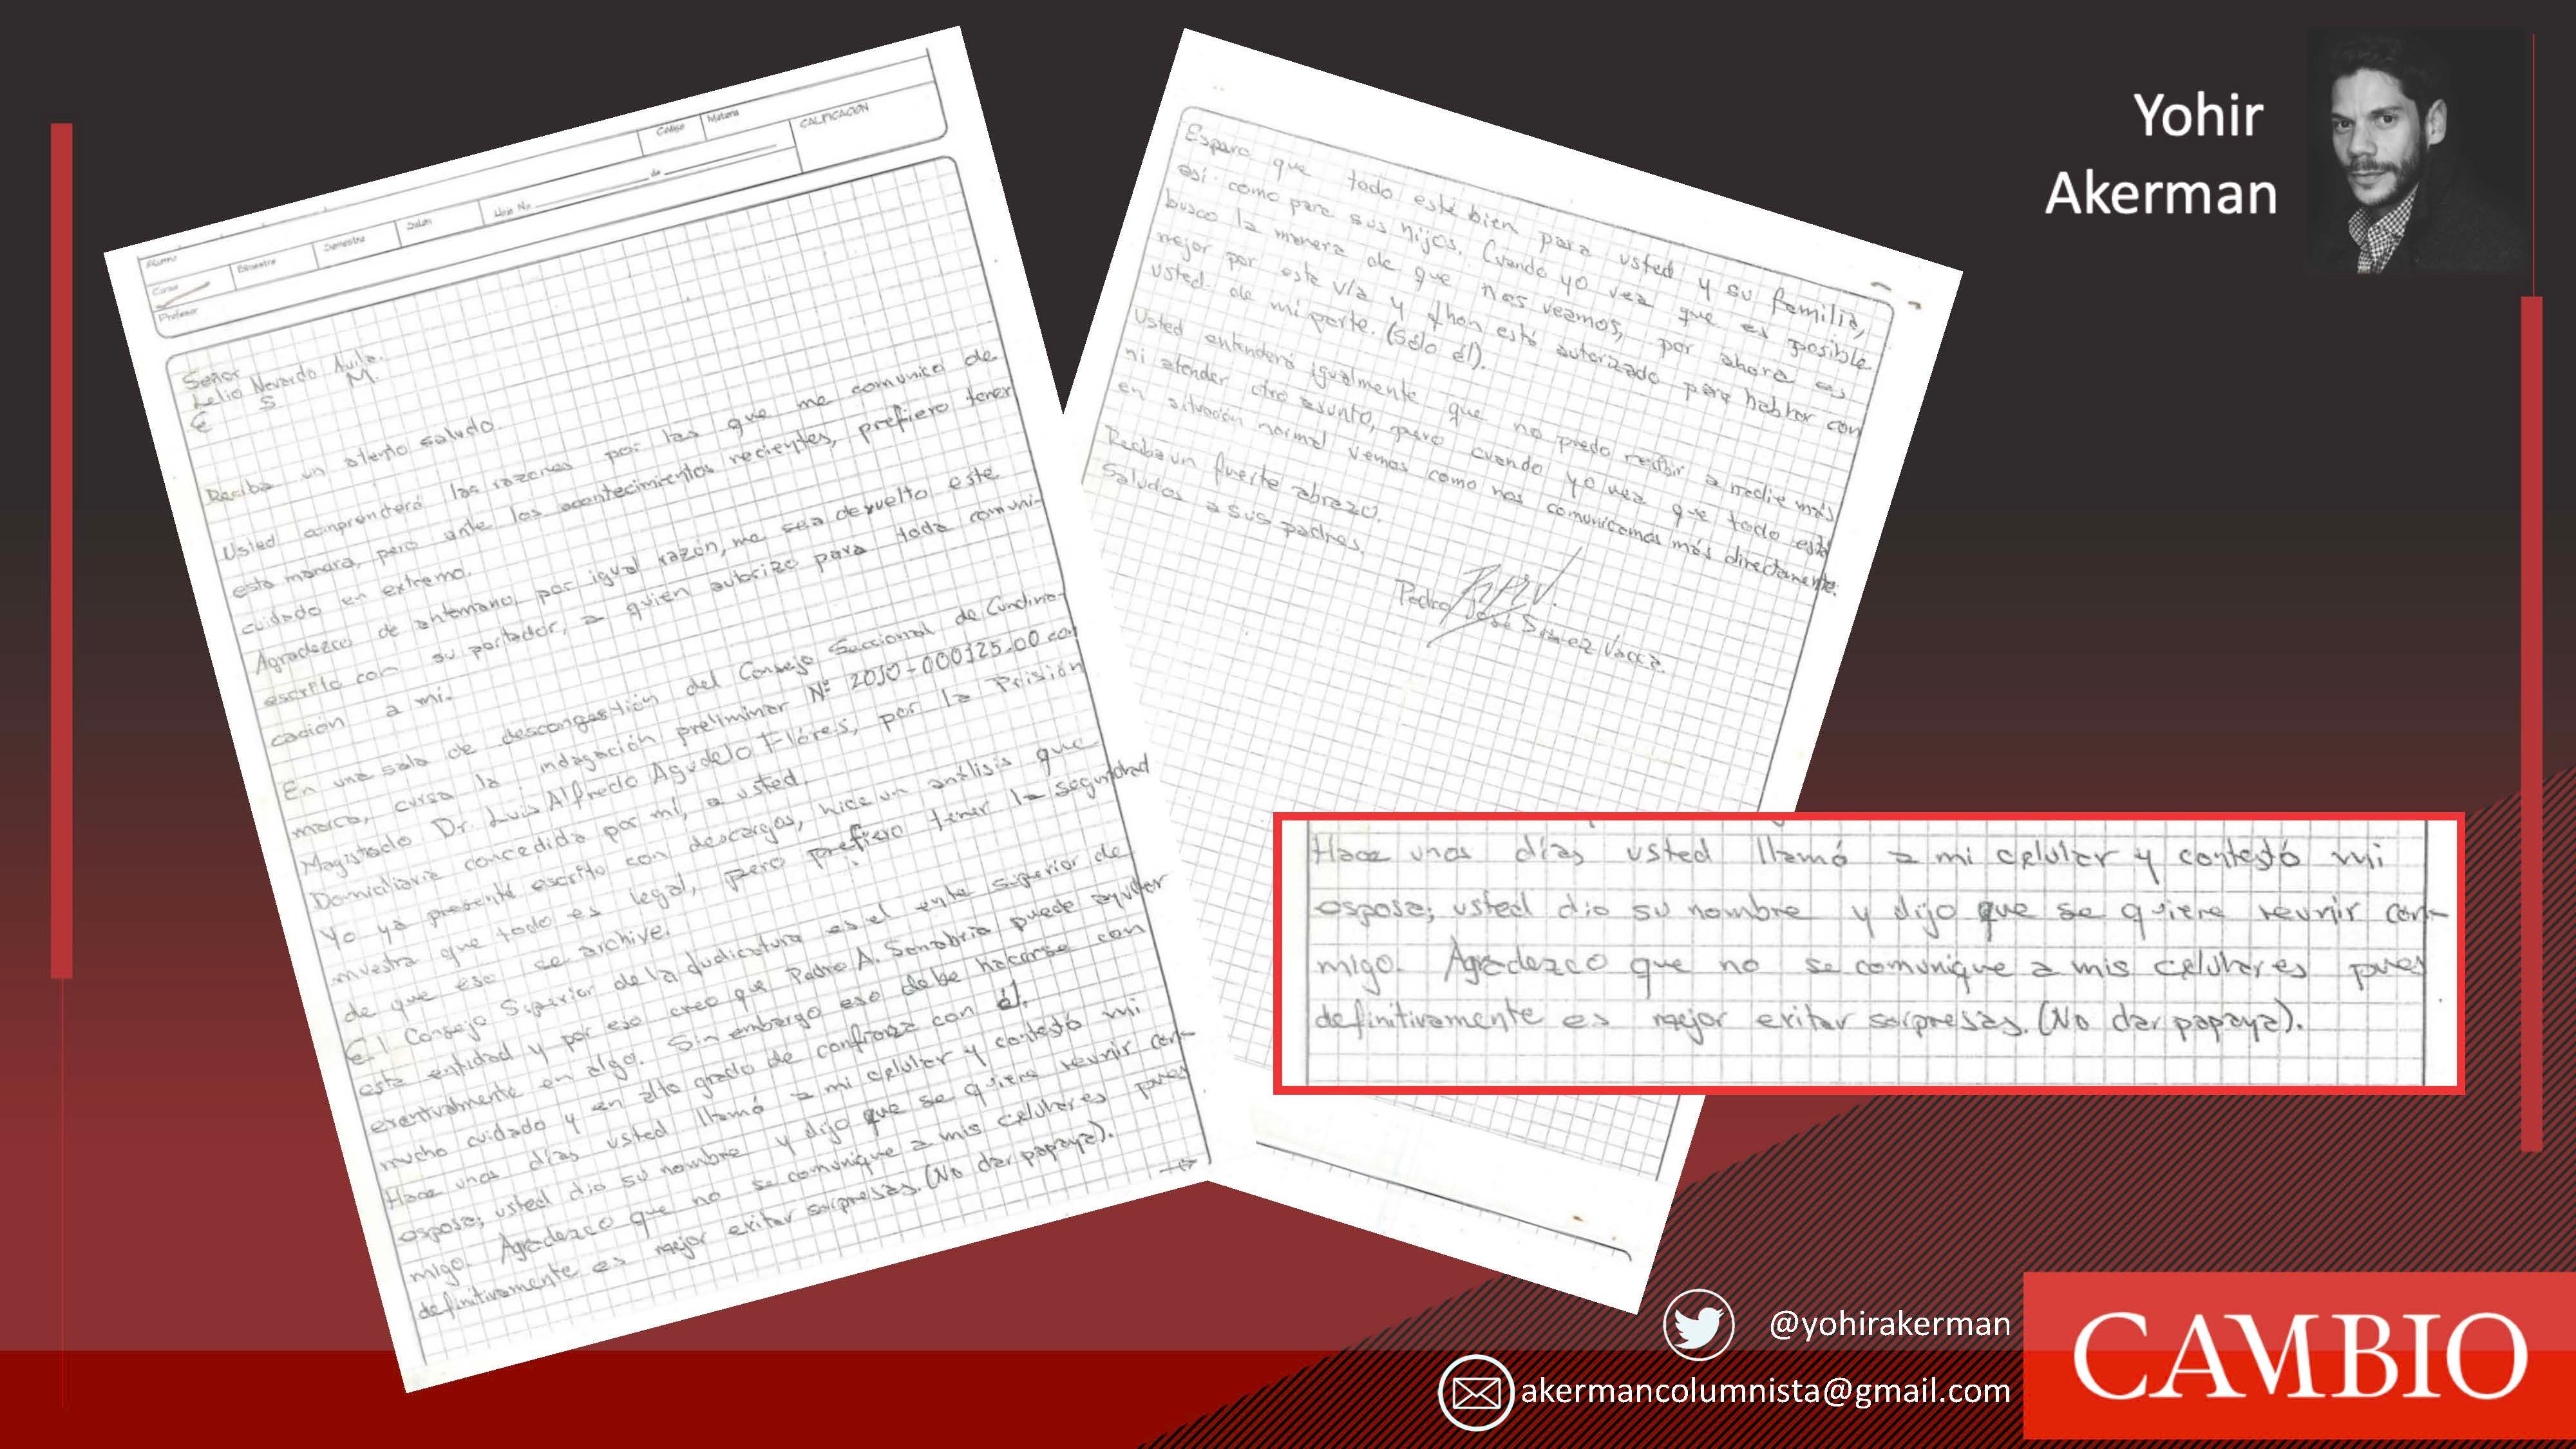 Alumno
Código
Materia
CALIFICACIÓN
Curso
Bimestre
Semestre
Salón
Hoja No. ______ de ______
Profesor
Señor
Lelio Nevardo Avila.
E S. M.
Reciba un atento saludo.
Usted comprenderá las razones por las que me comunico de
esta manera, pero ante los acontecimientos recientes, prefiero tener
cuidado en extremo.
Agradezco de antemano, por igual razón, me sea devuelto este
escrito con su portador, a quien autorizo para toda comuni-
cación a mí.
En una sala de descongestión del Consejo Seccional de Cundina-
marca, cursa la indagación preliminar Nº 2010-000125.00 con
Magistrado Dr. Luis Alfredo Agudelo Flórez, por la Prisión
Domiciliaria concedida por mí, a usted.
Yo ya presenté escrito con descargos, hice un análisis que
muestra que todo es legal, pero prefiero tener la seguridad
de que eso se archive.
El Consejo Superior de la Judicatura es el ente superior de
esta entidad y por eso creo que Pedro A. Sanabria puede ayudar
eventualmente en algo. Sin embargo eso debe hacerse con
mucho cuidado y en alto grado de confianza con él.
Hace unos días usted llamó a mi celular y contestó mi
esposa; usted dio su nombre y dijo que se quiere reunir con-
migo. Agradezco que no se comunique a mis celulares pues
definitivamente es mejor evitar sorpresas. (No dar papaya).
Espero que todo esté bien para usted y su familia,
así como para sus hijos. Cuando yo vea que es posible
busco la manera de que nos veamos, por ahora es
mejor por esta vía y Jhon está autorizado para hablar con
usted de mi parte. (Sólo él).
Usted entenderá igualmente que no puedo recibir a nadie más
ni atender otro asunto, pero cuando yo vea que todo está
en situación normal vemos como nos comunicamos más directamente.
Reciba un fuerte abrazo.
Saludos a sus padres.
Pedro José Suárez Vacca.
Hace unos días usted llamó a mi celular y contestó mi
esposa; usted dio su nombre y dijo que se quiere reunir con-
migo. Agradezco que no se comunique a mis celulares pues
definitivamente es mejor evitar sorpresas. (No dar papaya).
Yohir
Akerman
@yohirakerman
akermancolumnista@gmail.com
CAMBIO